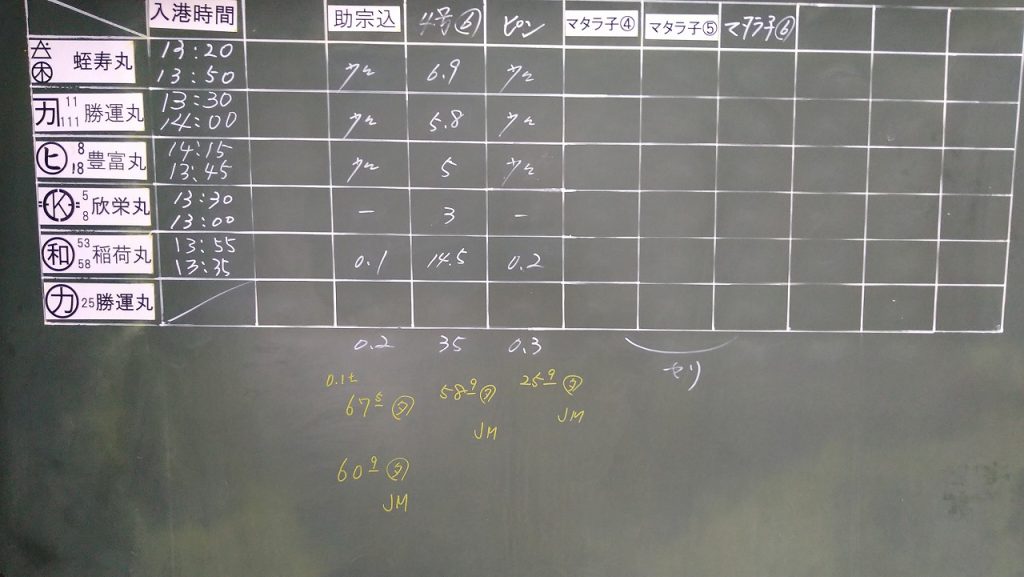 入港時間 助宗込 4号⑥ ピン マタラ子④ マタラ子⑤ マタラ子⑥
蛭寿丸 13:20
13:50 少々 6.9 少々
11 勝運丸 13:30
111 14:00 少々 5.8 少々
ヒ 8 豊富丸 14:15
18 13:45 少々 5 少々
K 5 欣栄丸 13:30
8 13:00 - 3 -
和 53 稲荷丸 13:55
58 13:35 0.1 14.5 0.2
カ 25 勝運丸
0.2 35 0.3
セリ
0.1t
67 5 58 9 25 9
JM JM
60 9
JM